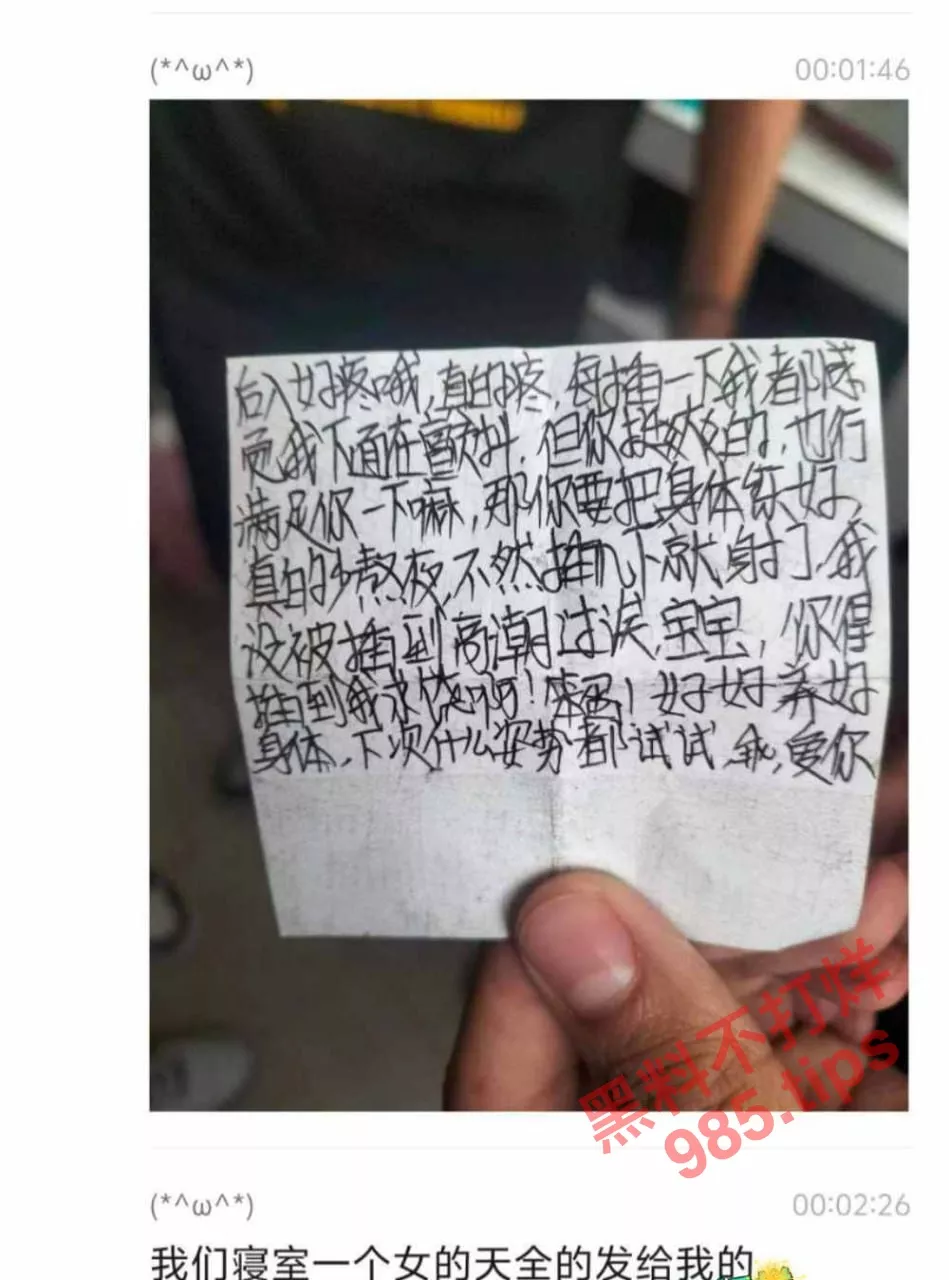 (*^ω^*) 00:01:46
后入好疼哦,真的疼,每插一下我都感
觉我下面在颤抖,但你挺爽的,也行
满足你一下嘛,那你要把身体练好,
真的少熬夜,不然插几下就射了,我
没被插到高潮过诶,宝宝,你得
插到我求饶啊!笨蛋!好好养好
身体,下次什么姿势都试试,我爱你
黑料不打烊
985.tips
(*^ω^*) 00:02:26
我们寝室一个女的天全的发给我的